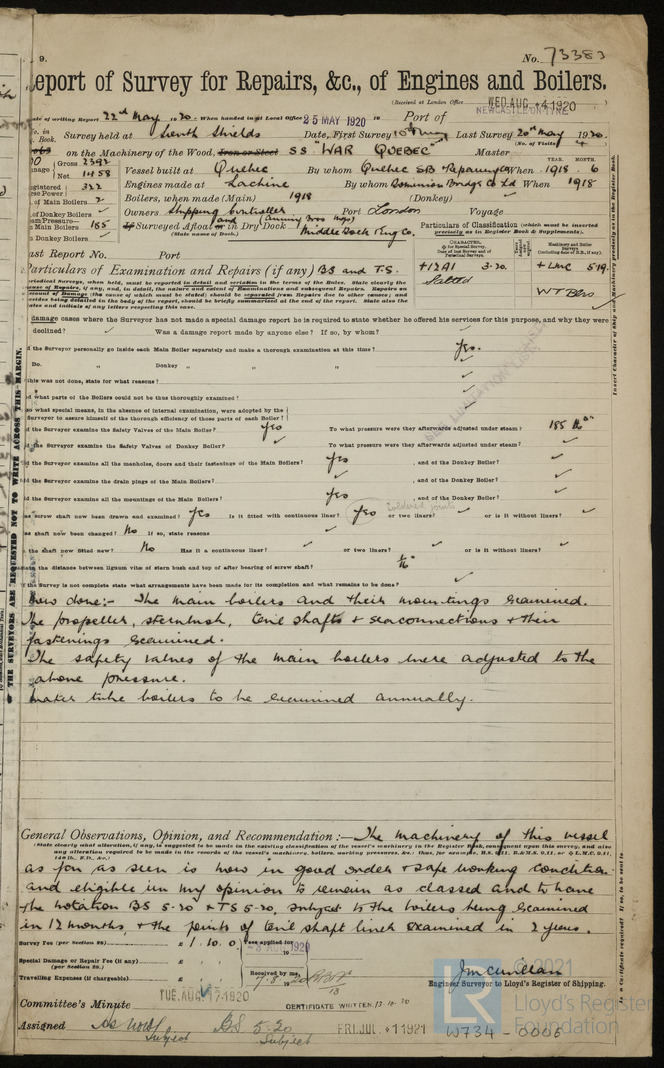 9.
No. 73383
Report of Survey for Repairs, &c., of Engines and Boilers.
(Received at London Office WED. AUG. 4 1920 )
Date of writing Report 22nd May 1920 When handed in at Local Office 25 MAY 1920 19 Port of NEWCASTLE-ON-TYNE
No. in Book. Survey held at South Shields Date, First Survey 10th May Last Survey 20th May 1920.
(No. of Visits 4 )
on the Machinery of the Wood, Iron or Steel SS "WAR QUEBEC" Master
Gross 2392
Net 1458
Vessel built at Quebec By whom Quebec SB & Repairing Co When 1918 6
YEAR. MONTH.
Registered Horse Power 322 Engines made at Lachine By whom Dominion Bridge Co Ltd When 1918
of Main Boilers 2 Boilers, when made (Main) 1918 (Donkey)
of Donkey Boilers Owners Shipping Controller Port London Voyage
Main Boilers 185 If Surveyed Afloat or in Dry Dock and
(State name of Dock.) Middle Dock Eng Co.
Donkey Boilers
Particulars of Classification (which must be inserted precisely as in Register Book & Supplements).
Last Report No. Port
Particulars of Examination and Repairs (if any) BS and T.S.
+12A1 3.20.
+ LMC 5.19
WT Blrs
damage cases where the Surveyor has not made a special damage report he is required to state whether he offered his services for this purpose, and why they were
declined? Was a damage report made by anyone else? If so, by whom?
the Surveyor personally go inside each Main Boiler separately and make a thorough examination at this time? Yes.
Do. " Donkey " " "
this was not done, state for what reasons?
what parts of the Boilers could not be thus thoroughly examined?
what special means, in the absence of internal examination, were adopted by the
Surveyor to assure himself of the thorough efficiency of those parts of each Boiler?
the Surveyor examine the Safety Valves of the Main Boiler? Yes To what pressure were they afterwards adjusted under steam? 185 lbs
the Surveyor examine the Safety Valves of Donkey Boiler? To what pressure were they afterwards adjusted under steam?
the Surveyor examine all the manholes, doors and their fastenings of the Main Boilers? Yes , and of the Donkey Boiler?
the Surveyor examine the drain plugs of the Main Boilers? , and of the Donkey Boiler?
the Surveyor examine all the mountings of the Main Boilers? Yes , and of the Donkey Boiler?
screw shaft now been drawn and examined? Yes Is it fitted with continuous liner? Yes or two liners? or is it without liners?
Soldered joints
shaft now been changed? No If so, state reasons
the shaft now fitted new? No Has it a continuous liner? or two liners? or is it without liners?
the distance between lignum vitæ of stern bush and top of after bearing of screw shaft? 1/16"
the Survey is not complete state what arrangements have been made for its completion and what remains to be done?
Now done:- The main boilers and their mountings examined.
The propeller, sternbush, tail shafts + seaconnections + their
fastenings examined.
The safety valves of the main boilers were adjusted to the
above pressure.
Water tube boilers to be examined annually.
General Observations, Opinion, and Recommendation :— The machinery of this vessel
(State clearly what alteration, if any, is suggested to be made in the existing classification of the vessel's machinery in the Register Book, consequent upon this survey, and also
any alteration required to be made in the records of the vessel's machinery, boilers, working pressures, &c.
as far as seen is now in good order + safe working condition
and eligible in my opinion to remain as classed and to have
the notation BS 5.20 + TS 5.20, subject to the boilers being examined
in 12 months, + the joints of tail shaft liner examined in 2 years.
Survey Fee (per Section 28.) £ 1 . 10 . 0 . Fees applied for 1920
Special Damage or Repair Fee (if any) £
(per Section 28.)
Travelling Expenses (if chargeable) £ Received by me, 7.8.20
Engineer Surveyor to Lloyd's Register of Shipping.
Committee's Minute TUE. AUG. 17 1920
CERTIFICATE WRITTEN 13.10.20
Assigned As now BS 5.20 FRI. JUL. 1 1921
Subject Subject
W734-0006
THE SURVEYORS ARE REQUESTED NOT TO WRITE ACROSS THIS MARGIN.
© 2021
LR
Lloyd's Register
Foundation